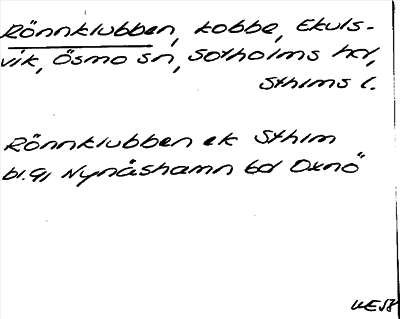 Rönnklubben, kobbe, Ekuls-
vik, Ösmo sn, Sotholms hd,
Sthlms l.
Rönnklubben ek Sthlm
bl. 91 Nynäshamn bd Oxnö